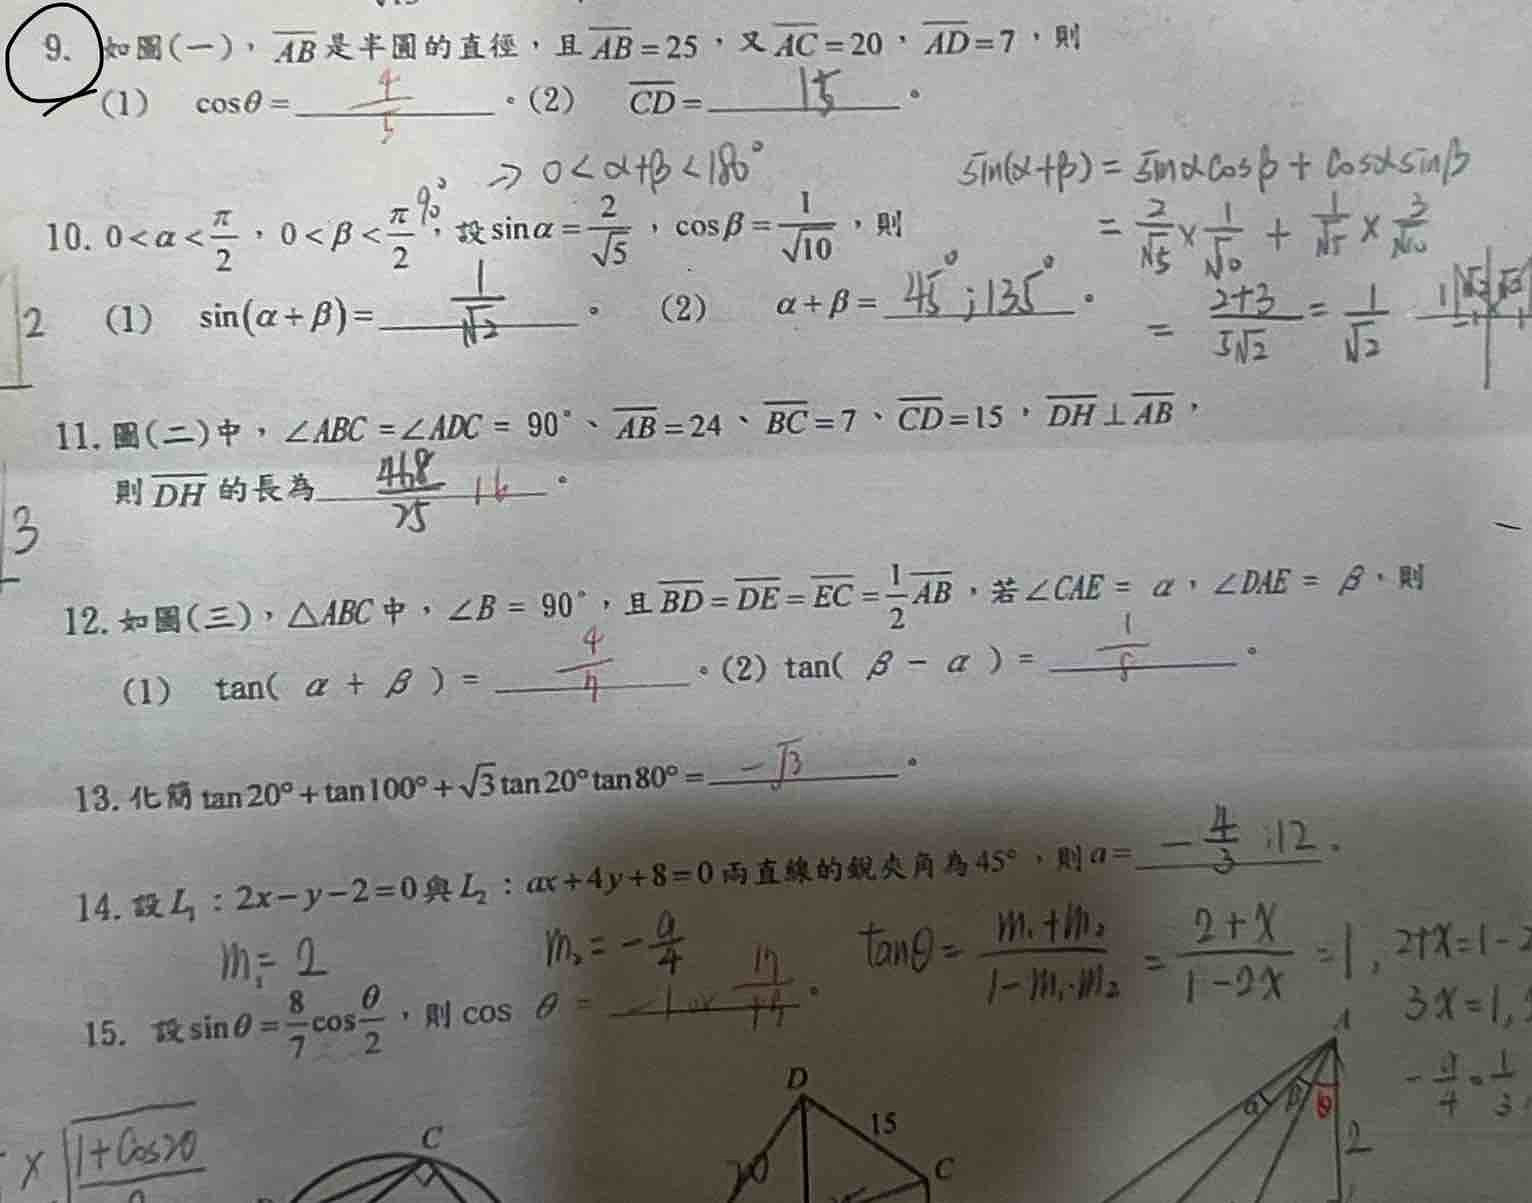 9. 如圖(一)，AB是半圓的直徑，且AB=25，又AC=20，AD=7，則
(1) cosθ= 4/5 。(2) CD= 15 。
⇒ 0<α+β<180°
sin(α+β)=sinαcosβ+cosαsinβ
10. 0<α<π/2，0<β<π/2 90°，設sinα=2/√5，cosβ=1/√10，則
=2/√5×1/√10+1/√5×3/√10
12 (1) sin(α+β)= 1/√2 。 (2) α+β= 45°;135° 。
=2+3/5√2=1/√2
11. 圖(二)中，∠ABC=∠ADC=90°、AB=24、BC=7、CD=15，DH⊥AB，
則DH的長為 468/25 16 。
3
12. 如圖(三)，△ABC中，∠B=90°，且BD=DE=EC=1/2AB，若∠CAE=α，∠DAE=β，則
(1) tan(α+β)= 4/7 。(2) tan(β-α)= 1/8 。
13. 化簡tan20°+tan100°+√3tan20°tan80°= -√3 。
14. 設L₁：2x-y-2=0與L₂：ax+4y+8=0兩直線的銳夾角為45°，則a= -4/3;12 .
m₁=2 m₂=-a/4 tanθ=m₁+m₂/1-m₁·m₂=2+x/1-2x=1, 2+x=1-2
3x=1,
15. 設sinθ=8/7cosθ/2，則cosθ= 。
-a/4=1/3
A
α β θ
2
D
15
20 C
C
×√1+cos2θ